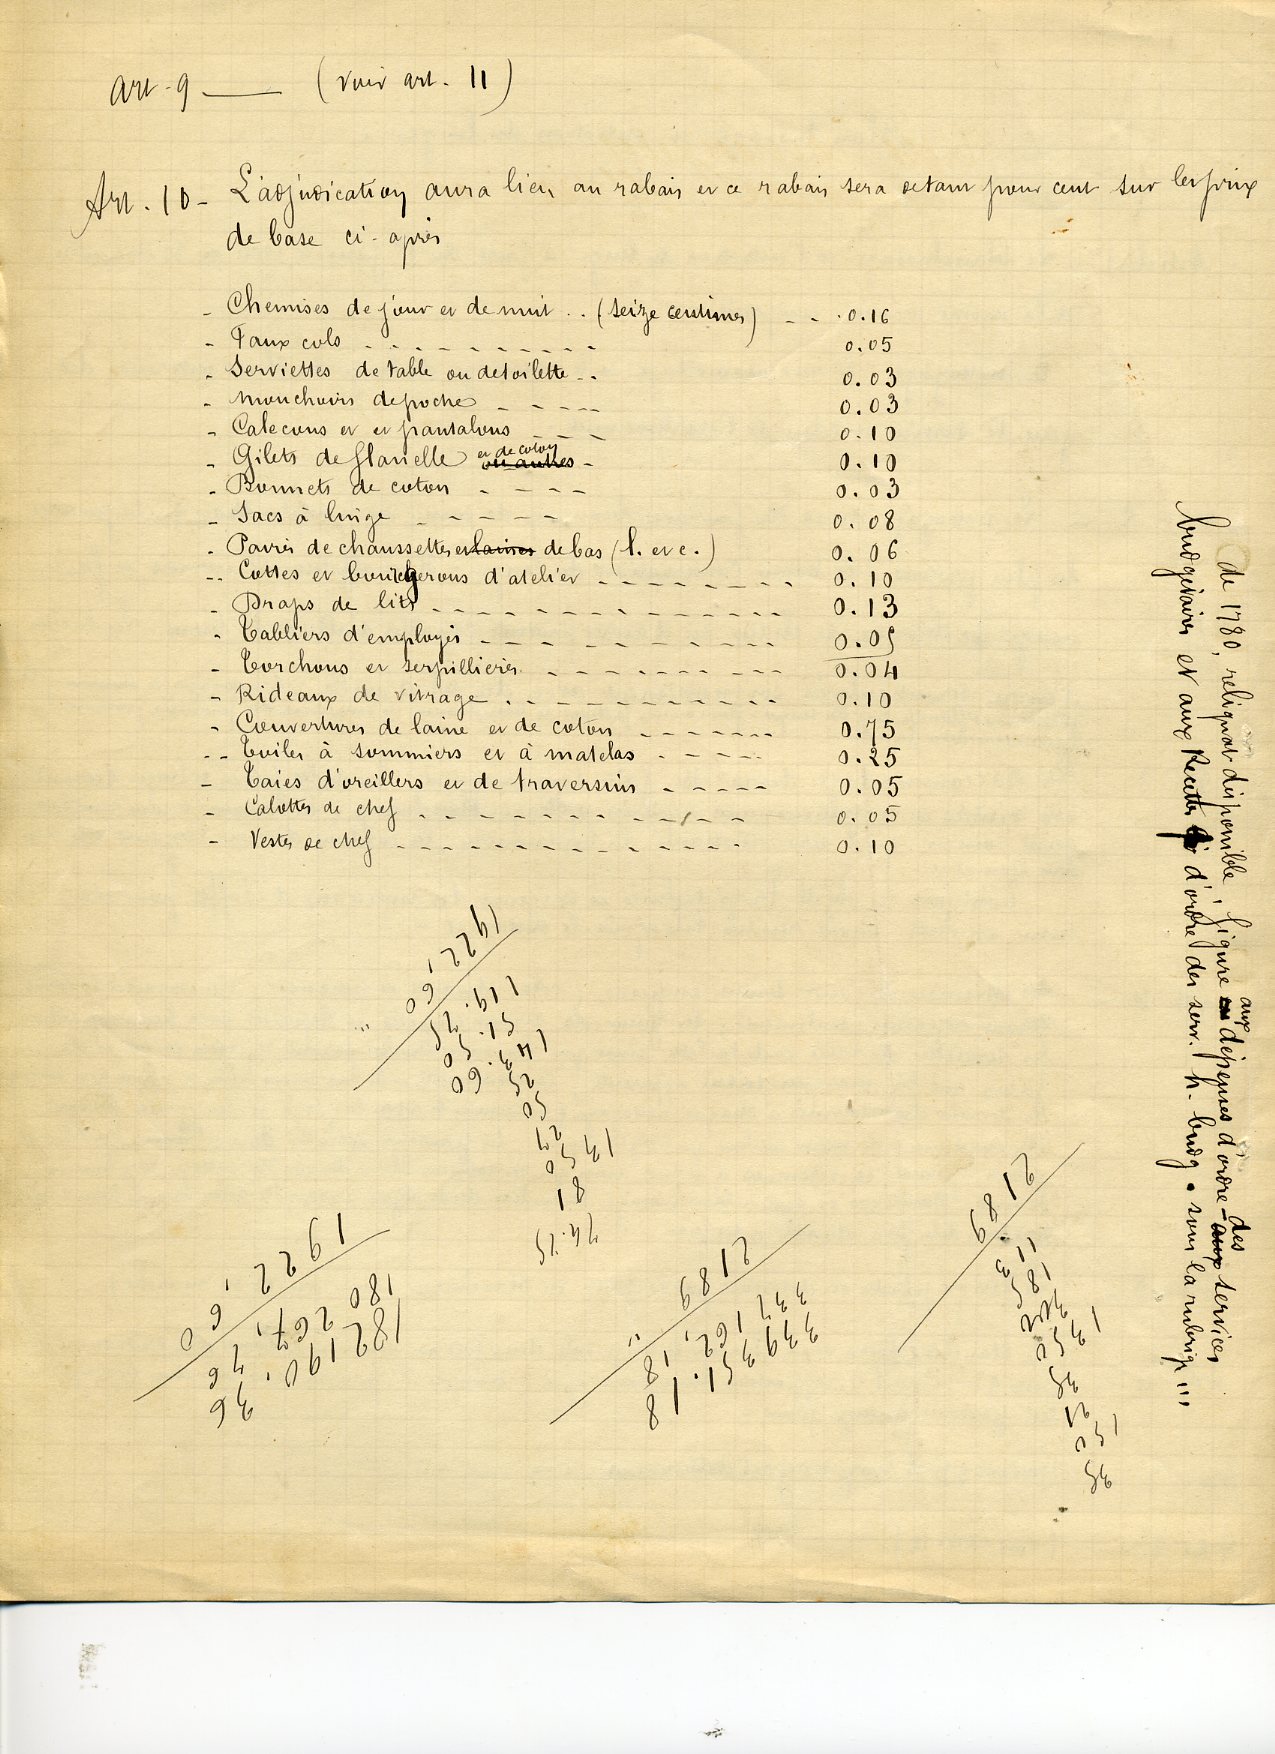 Art. 9 — (voir art. 11)
Art. 10 - L'adjudication aura lieu au rabais et ce rabais sera de tant pour cent sur les prix
de base ci-après
- Chemises de jour et de nuit .. (seize centimes) - - . 0.16
- Faux cols - - - - - - - - - - 0.05
- Serviettes de table ou de toilette - - 0.03
- Mouchoirs de poche - - - - 0.03
- Calecons et et pantalons - - - 0.10
- Gilets de flanelle et de coton ou autres - 0.10
- Bonnets de coton - - - - 0.03
- Sacs à linge - - - - - 0.08
- Paires de chaussettes et laines de bas (l. et c.) 0.06
- Cottes et bourgerons d'atelier - - - - - - - - 0.10
- Draps de lits - - - - - - - - - - - - - 0.13
- Tabliers d'employés - - - - - - - - - - - 0.05
- Torchons et serpillières - - - - - - - - - 0.04
- Rideaux de vitrage - - - - - - - - - - 0.10
- Couvertures de laine et de coton - - - - - - 0.75
- Toiles à sommiers et à matelas - - - - - 0.25
- Taies d'oreillers et de traversins - - - - - 0.05
- Calottes de chef - - - - - - - - - - - - 0.05
- Vestes de chef - - - - - - - - - - - - - 0.10
de 1780, reliquat disponible, figure en aux dépenses d'ordre - aux des services
budgétaires et aux Recettes d'ordre des serv. h. budg. sous la rubrique
1922,60
119.25
51.50
143.60
25
50
27
13 50
81
74.25
1922,60
180
267,76
182190,36
2189
337162,18
339351.18
2189